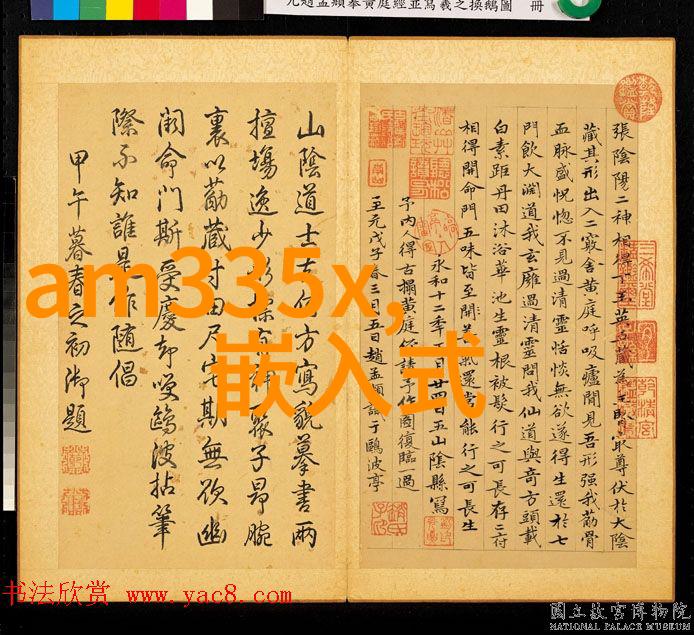 元趙孟頫摹黃庭經並寫羲之換鵝圖 冊
張陰陽二神相得下玉英五藏為主腎最尊伏於大陰
藏其形出入二竅舍黃庭呼吸廬間見吾形強我筋骨
血脉盛怳惚不見過清靈恬惔無欲遂得生還於七
門飲大淵道我玄雍過清靈問我仙道與奇方頭載
白素距丹田沐浴華池生靈根被髮行之可長存二府
相得開命門五味皆至開善氣還常能行之可長生
永和十二年五月廿四日五山陰縣寫
予內人得古搨黃庭 請予作圖復臨一過
至元戊子春三月五日趙孟頫識于鷗波亭
山陰道士
方寫貌摹書兩
擅場逸少
子昂腕
裏以筋藏付田尺宅斯無欲幽
闕命門斯受慶却嘆鷗波拈筆
際不知誰是作隨倡
甲午暮春之初御題
am335x,
嵌入式
书法欣赏 www.yac8.com
國立故宮博物院
NATIONAL PALACE MUSEUM